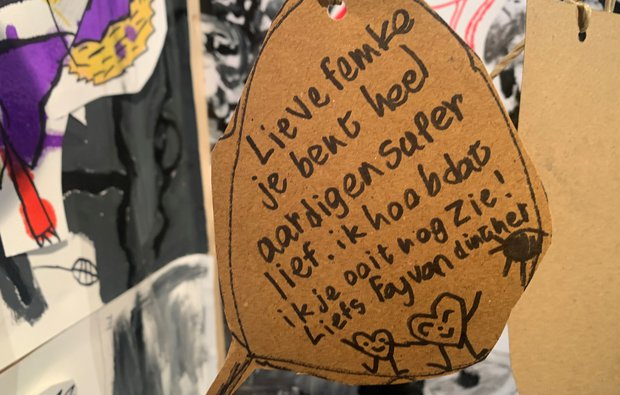 Lieve femke
je bent heel
aardigen super
lief. ik hoob dat
ik je ooit nog zie!
Liefs Fay van dinther